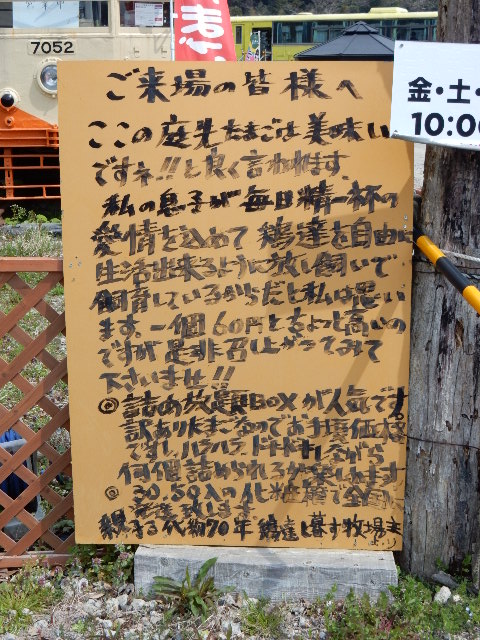 7052
金・土・
10:00
ご来場の皆様へ
ここの庭先たまごは美味い
ですネ!!と良く言われます.
私の息子が毎日精一杯の
愛情を込めて鶏達を自由に
生活出来るように放し飼いで
飼育しているからだと私は思い
ます.一個60円とちょっと高いの
ですが是非召し上がってみて
下さいませ!!
◎詰め放題BOXが人気です
訳ありたまごなのでお手頃価格
ですし、ハラハラ、ドキドキしながら
何個詰められるか楽しめます
◎30.50入の化粧箱で全国
発送致します
親子三代約70年 鶏達と暮す牧場主
より